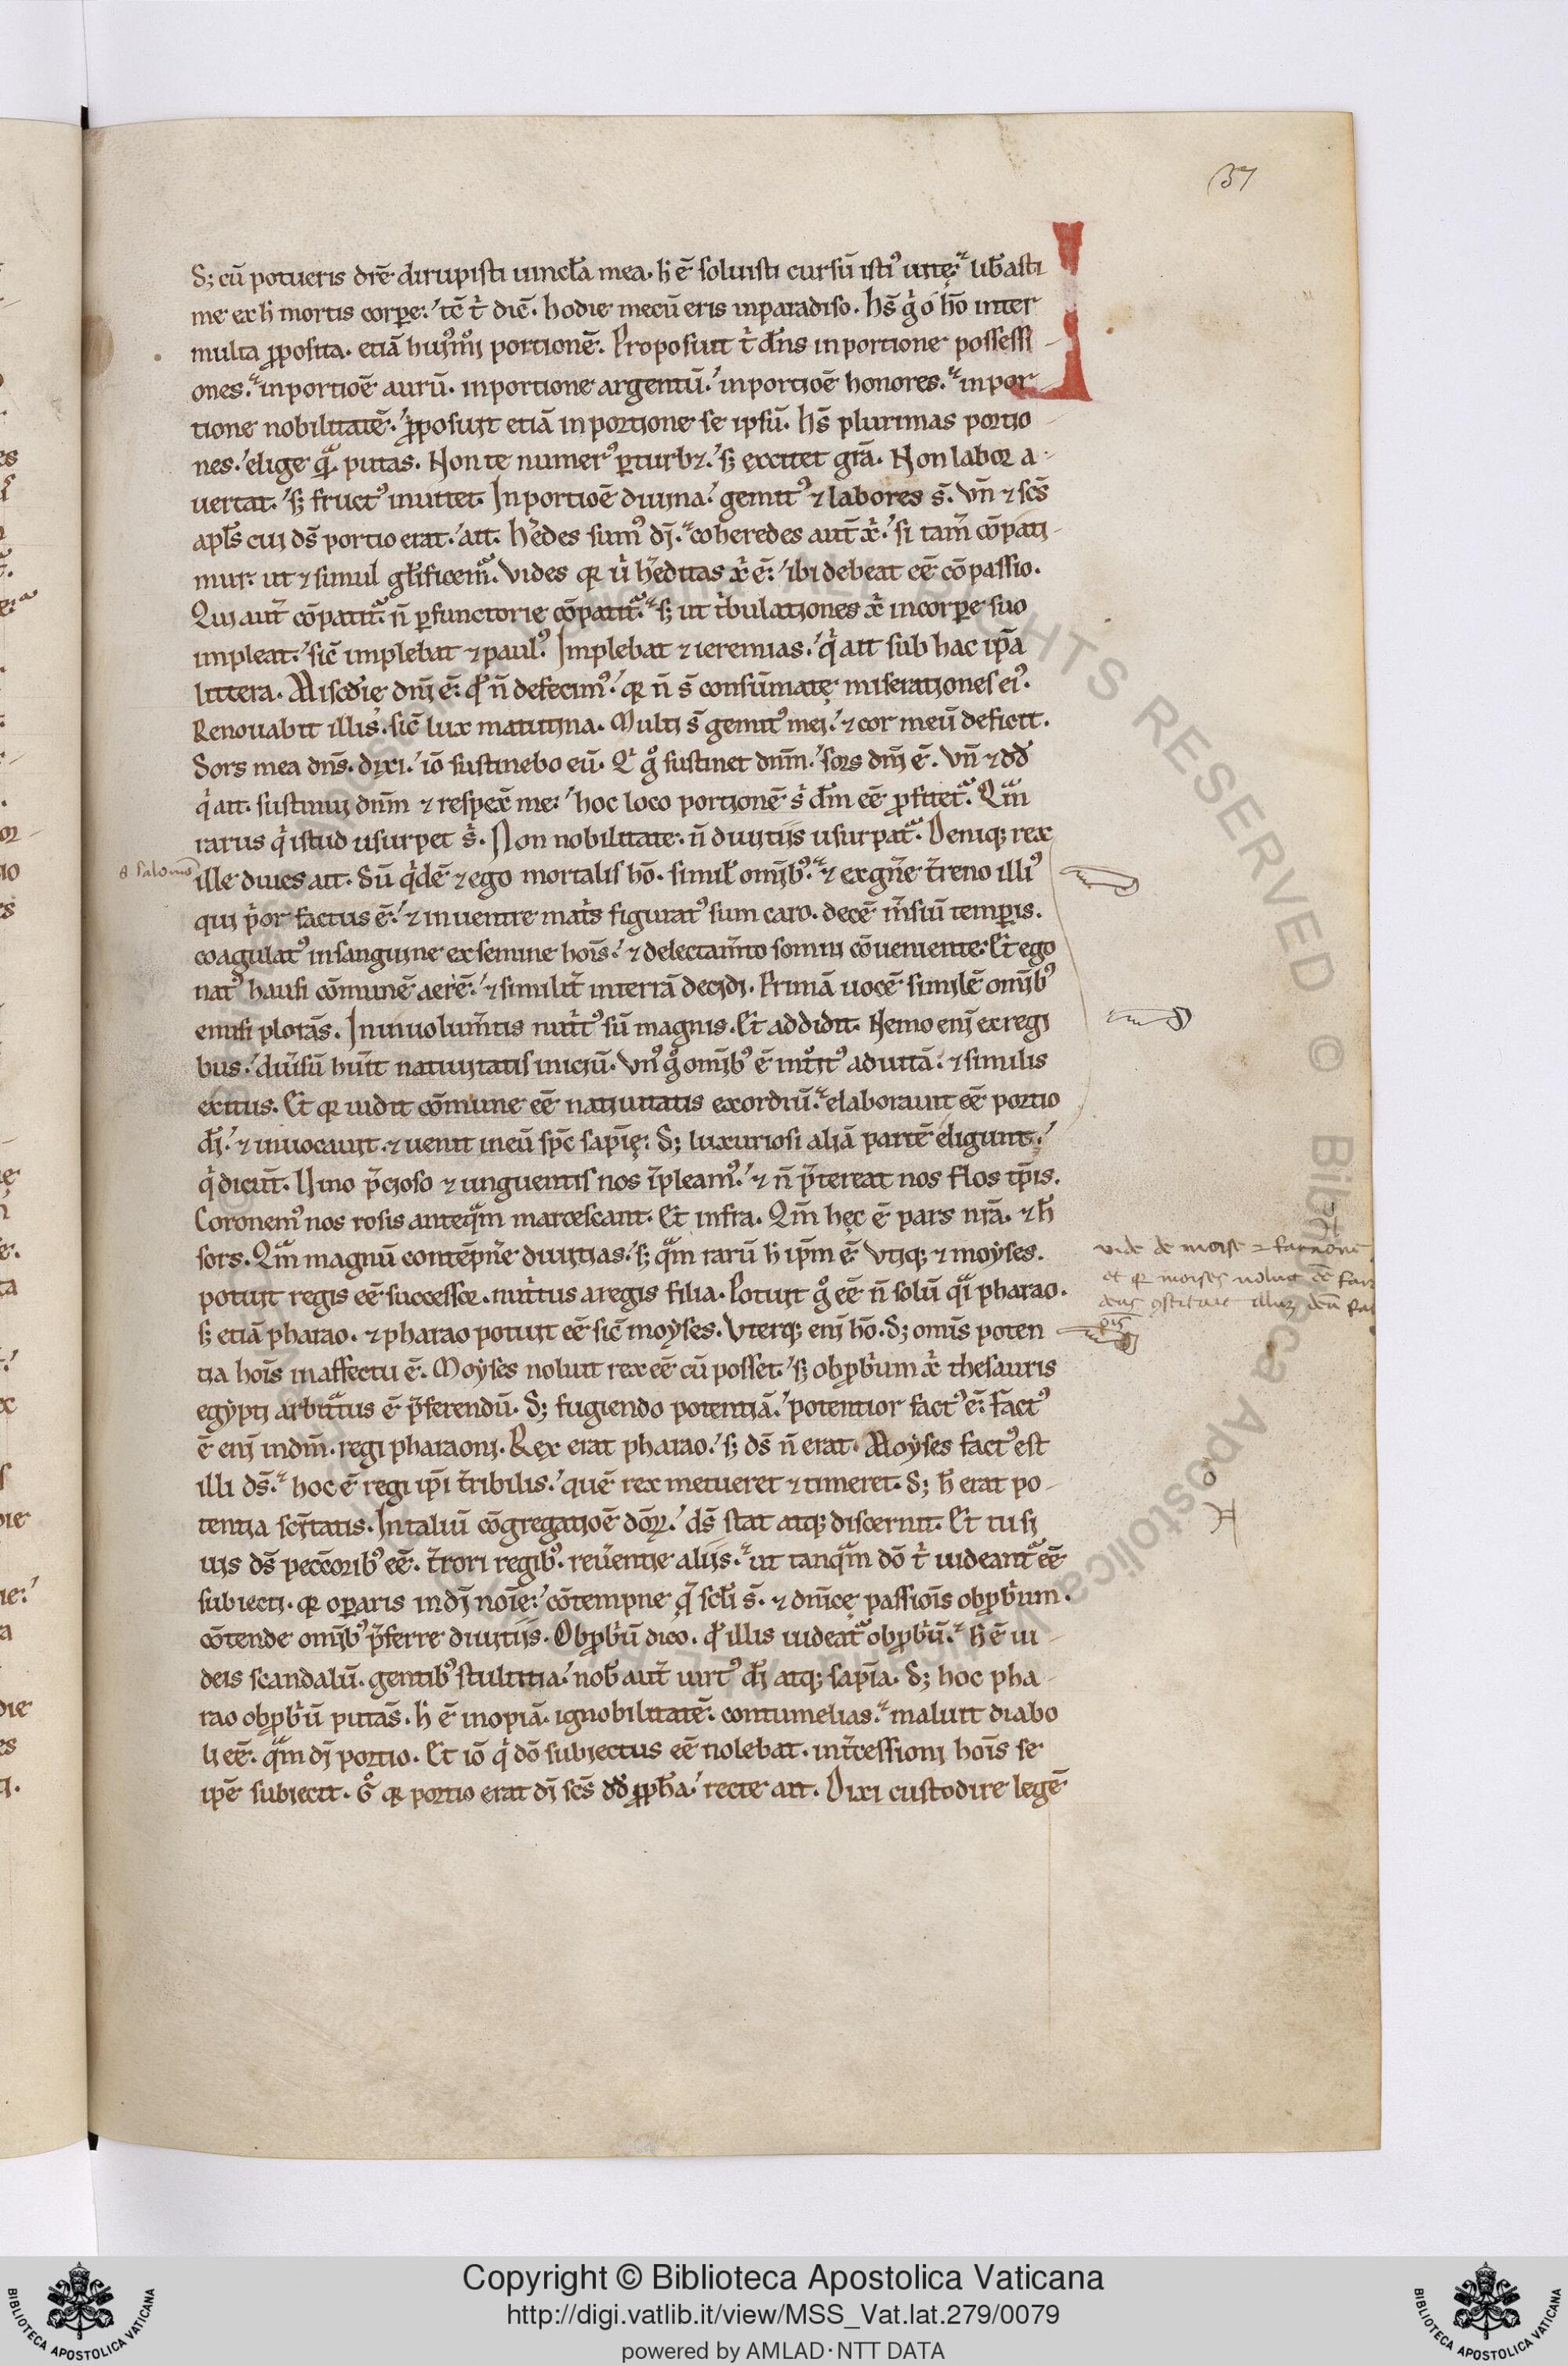 37
S; cū potueris dr̄e dirupisti uincl̄a mea. h̄ ē soluisti cursū isti⁹ uitę. lib̄asti
me ex h̄ mortis corꝑe. tc̄ t̄ dic̄. hodie mecū eris in paradiso. Hs̄ g̊ o hō inter
multa ꝓposita. etiā hui⁹mōi portionē. Proposuit t̄ dn̄s in portione possessi
ones. in portioē aurū. in portione argentū. in portioē honores. in por
tione nobilitatē. ꝓposuit etiā in portione se ipsū. Hs̄ plurimas portio
nes. elige qͣ putas. Non te numer⁹ ꝑturbꝫ. sꝫ excitet gr̄a. Non labor a
uertat. sꝫ fruct⁹ inuitet. In portioē diuina. gemit⁹ ⁊ labores s̄. Vn̄ ⁊ sc̄s
apl̄s cui ds̄ portio erat. ait. H̄edes sum⁹ dī. coheredes aut̄ xp̄i. si tam̄ cōpati
mur. ut ⁊ simul gl̄ificemͣ. Vides qꝛ ū h̄editas xp̄i ē. ibi debeat eē cōpassio.
Qui aut̄ cōpatitͣ. n̄ ꝑfunctorie cōpatitͣ. sꝫ ut t̄bulationes xp̄i in corꝑe suo
impleat. sic̄ implebat ⁊ paul⁹. Implebat ⁊ ieremias. qͥ ait sub hac ip̄a
littera. Misc̄die dn̄i ē. qd̄ n̄ defecim⁹. qꝛ n̄ s̄ consūmatę miserationes ei⁹.
Renouabit illis. sic̄ lux matutina. Multi s̄ gemit⁹ mei. ⁊ cor meū deficit.
Sors mea dn̄s. dixi. iō sustinebo eū. Qͥ g̊ sustinet dn̄m. sors dn̄i ē. Vn̄ ⁊ dd̄
qͥ ait. sustinui dn̄m ⁊ respex̄ me. hoc loco portionē s̄ dm̄ eē ꝓfitetͣ. Qͣm
rarus qͥ istud usurpet s̄. Non nobilitate. n̄ diuitiis usurpatͣ. Deniqꝫ rex
ille diues ait. Sū qͥdē ⁊ ego mortalis hō. simil̄ omīb⁹. ⁊ ex gn̄e t̄reno illi⁹
qui pͥor factus ē. ⁊ in uentre mat̄s figurat⁹ sum caro. decē m̄siū temꝑis.
coagulat⁹ in sanguine ex semine hoīs. ⁊ delectam̄to somni cōueniente. Et ego
nat⁹ hausi cōmunē aerē. ⁊ similit̄ in terrā decidi. Primā uocē similē omīb⁹
emisi plorās. In inuolum̄tis nutͥt⁹ sū magnis. Et addidit. Nemo enī ex regi
bus. diūsū huīt natiuitatis iniciū. Vn⁹ g̊ omīb⁹ ē int̊it⁹ ad uitā. ⁊ similis
exitus. Et qꝛ uidit cōmune eē natiuitatis exordiū. elaborauit eē portio
dī. ⁊ inuocauit. ⁊ uenit in eū sp̄c sapīę. Sꝫ luxuriosi aliā partē eligunt.
qͥ dicūt. Vino p̄cioso ⁊ unguentis nos īpleam⁹. ⁊ n̄ p̄tereat nos flos tp̄is.
Coronem⁹ nos rosis anteqͣm marcescant. Et infra. Qm̄ hęc ē pars nr̄a. ⁊ h̄
sors. Qͣm magnū contēpn̄e diuitias. sꝫ qͣm rarū h̄ ip̄m ē. Vtiqꝫ ⁊ moyses.
potuit regis eē successor. nutͥtus a regis filia. Potuit g̊ eē n̄ solū qͣi pharao.
sꝫ etiā pharao. ⁊ pharao potuit eē sic̄ moyses. Vterqꝫ enī hō. Sꝫ omīs poten
tia hoīs in affectu ē. Moyses noluit rex eē cū posset. sꝫ obꝓbͥum xp̄i thesauris
egypti arbitͣtus ē p̄ferendū. Sꝫ fugiendo potentiā. potentior fact⁹ ē. Fact⁹
ē enī in dm̄. regi pharaoni. Rex erat pharao. sꝫ ds̄ n̄ erat. Moyses fact⁹ est
illi ds̄. hoc ē regi ip̄i t̄ribilis. quē rex metueret ⁊ timeret. Sꝫ h̄ erat po
tentia sc̄itatis. In taliū cōgregatioē dōꝝ. ds̄ stat atqꝫ discernit. Et tu si
uis ds̄ pecc̄orib⁹ eē. t̄rori regib⁹. reūentie aliis. ut tanqͣm dō t̄ uideantͣ eē
subiecti. qꝛ oꝑaris in dī noīe. cōtempne q̄ scl̄i s̄. ⁊ dn̄icę passiōis obꝓbͥum.
cōtende omīb⁹ p̄ferre diuitiis. Obꝓbͥū dico. qd̄ illis uideatͣ obꝓbͥū. h̄ ē iu
deis scandalū. gentib⁹ stultitia. nob̄ aut̄ uirt⁹ dī atqꝫ sapīa. Sꝫ hoc pha
rao obꝓbͥū putās. h̄ ē inopiā. ignobilitatē. contumelias. maluit diabo
li eē. qͣm dī portio. Et iō qͥ dō subiectus eē nolebat. int̄cessioni hoīs se
ip̄e subiecit. G̊ qꝛ portio erat dī sc̄s dd̄ ꝓph̄a. recte ait. Dixi custodire legē
s salomō
vide de moise ⁊ faraone
et qꝛ moises noluit eē
deus ꝯstituit illuꝫ deū
Copyright © Biblioteca Apostolica Vaticana
http://digi.vatlib.it/view/MSS_Vat.lat.279/0079
powered by AMLAD·NTT DATA
BIBLIOTECA APOSTOLICA VATICANA
BIBLIOTECA APOSTOLICA VATICANA